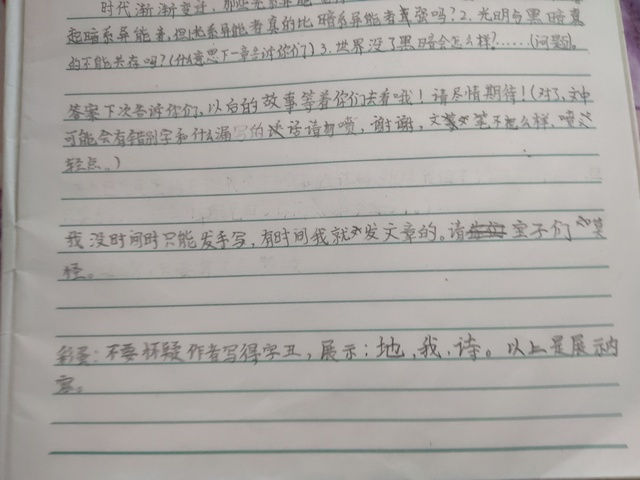 时代渐渐变迁，那些光系异能
起暗系异能者，但光系异能者真的比暗系异能者要强吗？2.光明与黑暗真
的不能共存吗？(什么意思下一章告诉你们)3.世界没了黑暗会怎么样？……(问题)。
答案下次告诉你们，以后的故事等着你们去看哦！请尽情期待！(对了，文中
可能会有错别字和什么漏写的的话请勿喷，谢谢，文笔不怎么样，喷
轻点。)
我没时间时只能发手写，有时间我就发文章的。请宝子们莫
怪。
彩蛋：不要怀疑作者写得字丑，展示：地，我，诗。以上是展示内
容。